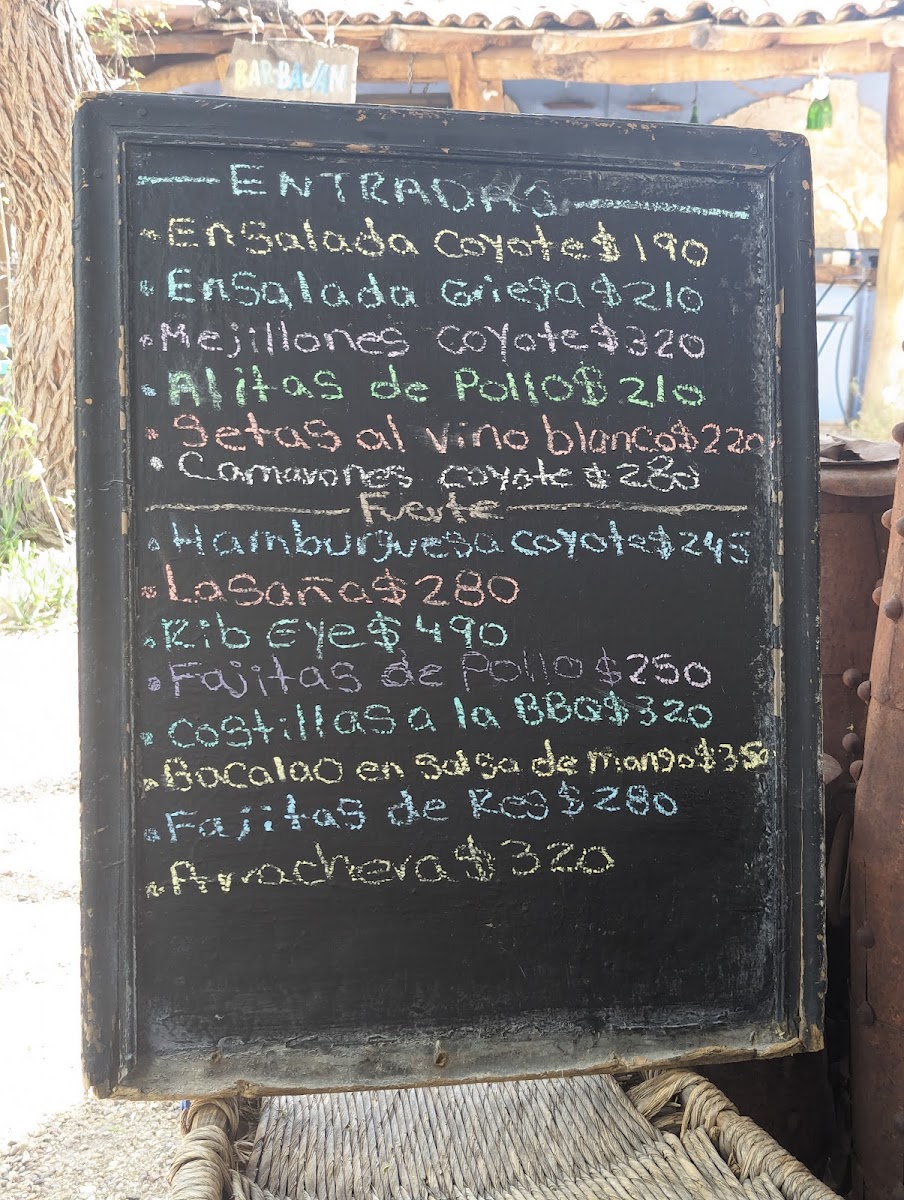 BAR-BAJAN
ENTRADAS
Ensalada Coyote $190
Ensalada Griega $210
Mejillones coyote $320
Alitas de Pollo $ 210
Setas al vino blanco $220
Camarones coyote $280
Fuerte
Hamburguesa coyote $245
Lasaña $280
Rib Eye $490
Fajitas de Pollo $250
Costillas a la BBQ $320
Bacalao en salsa de mango $350
Fajitas de Res $280
Arrachera $320